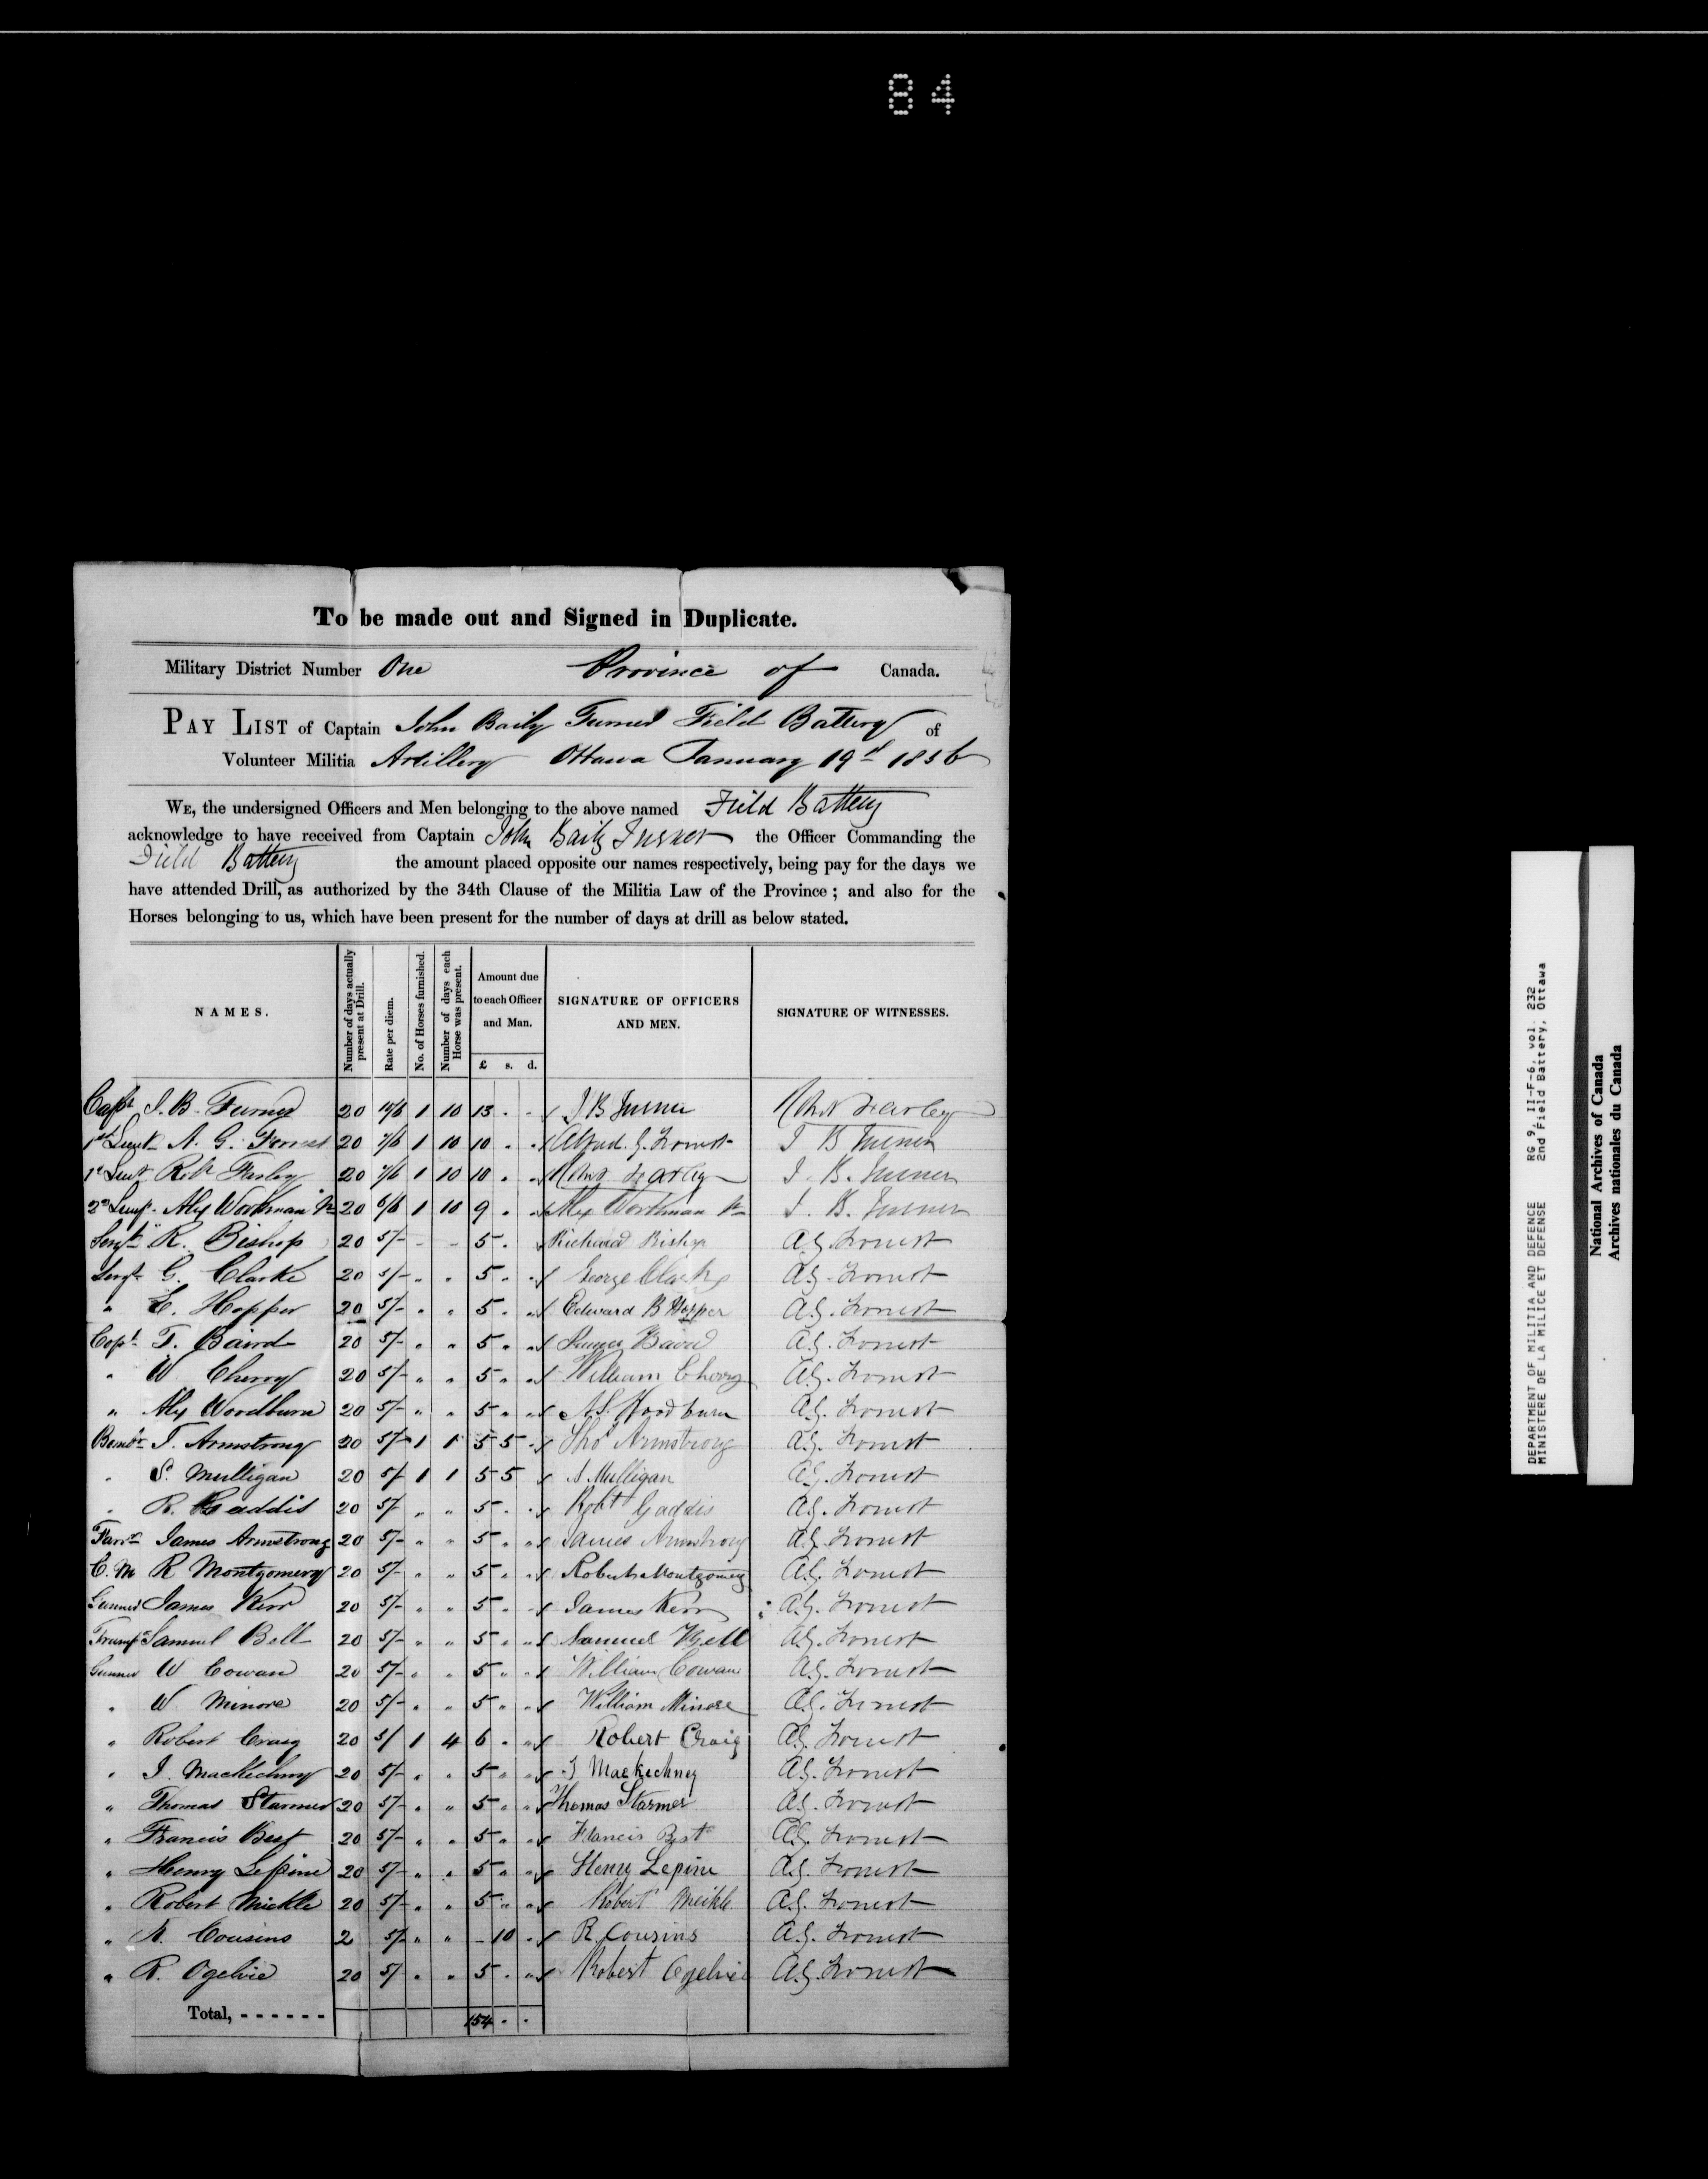 84
To be made out and Signed in Duplicate.
Military District Number One Province of Canada.
PAY LIST of Captain John Baily Turner Field Battery of
Volunteer Militia Artillery Ottawa January 19th 1856
WE, the undersigned Officers and Men belonging to the above named Field Battery
acknowledge to have received from Captain John Baily Turner the Officer Commanding the
Field Battery the amount placed opposite our names respectively, being pay for the days we
have attended Drill, as authorized by the 34th Clause of the Militia Law of the Province; and also for the
Horses belonging to us, which have been present for the number of days at drill as below stated.
NAMES. Number of days actually present at Drill. Rate per diem. No. of Horses furnished. Number of days each Horse was present. Amount due to each Officer and Man. £ s. d. SIGNATURE OF OFFICERS AND MEN. SIGNATURE OF WITNESSES.
Capt J. B. Turner 20 10/6 1 10 13 . - J B Turner
1st Lieut A. G. Forrest 20 7/6 1 10 10 . . Alfred. G. Forrest J B Turner
1st Lieut Robt Farley 20 7/6 1 10 10 . . Robt Farley J. B. Turner
2nd Lieut. Alex Workman Jr 20 6/6 1 10 9 . . Alex Workman Jr J. B. Turner
Sergt R. Bishop 20 5/- - - 5 . Richard Bishop A.G. Forrest
Sergt G. Clarke 20 5/- " " 5 . . George Clarke A.G. Forrest
" E. Hopper 20 5/- " " 5 . " Edward B Hopper A.G. Forrest
Copl T. Baird 20 5/- " " 5 . " Baird A.G. Forrest
" W Cherry 20 5/- " " 5 " " William Cherry A.G. Forrest
" Alex Woodburn 20 5/- " " 5 " " A.S. Woodburn A.G. Forrest
Bombr T. Armstrong 20 5/- 1 1 5 5 . Thos Armstrong A.G. Forrest
" S. Mulligan 20 5/- 1 1 5 5 S. Mulligan A.G. Forrest
" R. Gaddis 20 5/- " " 5 . . Robt Gaddis A.G. Forrest
Farrr James Armstrong 20 5/- " " 5 " " James Armstrong A.G. Forrest
C. M R Montgomery 20 5/- " " 5 " " Robert Montgomery A.G. Forrest
Gunner James Kerr 20 5/- " " 5 . - James Kerr A.G. Forrest
Trumpr Samuel Bell 20 5/- " " 5 " " Samuel Bell A.G. Forrest
Gunner W Cowan 20 5/- " " 5 " - William Cowan A.G. Forrest
" W Minore 20 5/- " " 5 " " William Minore A.G. Forrest
" Robert Craig 20 5/ 1 4 6 . " Robert Craig A.G. Forrest
" J. MacKechney 20 5/- " " 5 " " J Mackechney A.G. Forrest
" Thomas Starmer 20 5/- " " 5 " " Thomas Starmer A.G. Forrest
" Francis Best 20 5/- " " 5 " " Francis Best A.G. Forrest
" Henry Lepine 20 5/- " " 5 " " Henry Lepine A.G. Forrest
" Robert Mickle 20 5/- " " 5 " " Robert Meikle A.G. Forrest
" R. Cousins 2 5/- " " - 10 . R. Cousins A.G. Forrest
" R. Ogelvie 20 5/ " " 5 . " Robert Ogelvie A.G. Forrest
Total, - - - - - - 154 . .
DEPARTMENT OF MILITIA AND DEFENCE RG 9, II-F-6, vol. 232
MINISTERE DE LA MILICE ET DEFENSE 2nd Field Battery, Ottawa
National Archives of Canada
Archives nationales du Canada